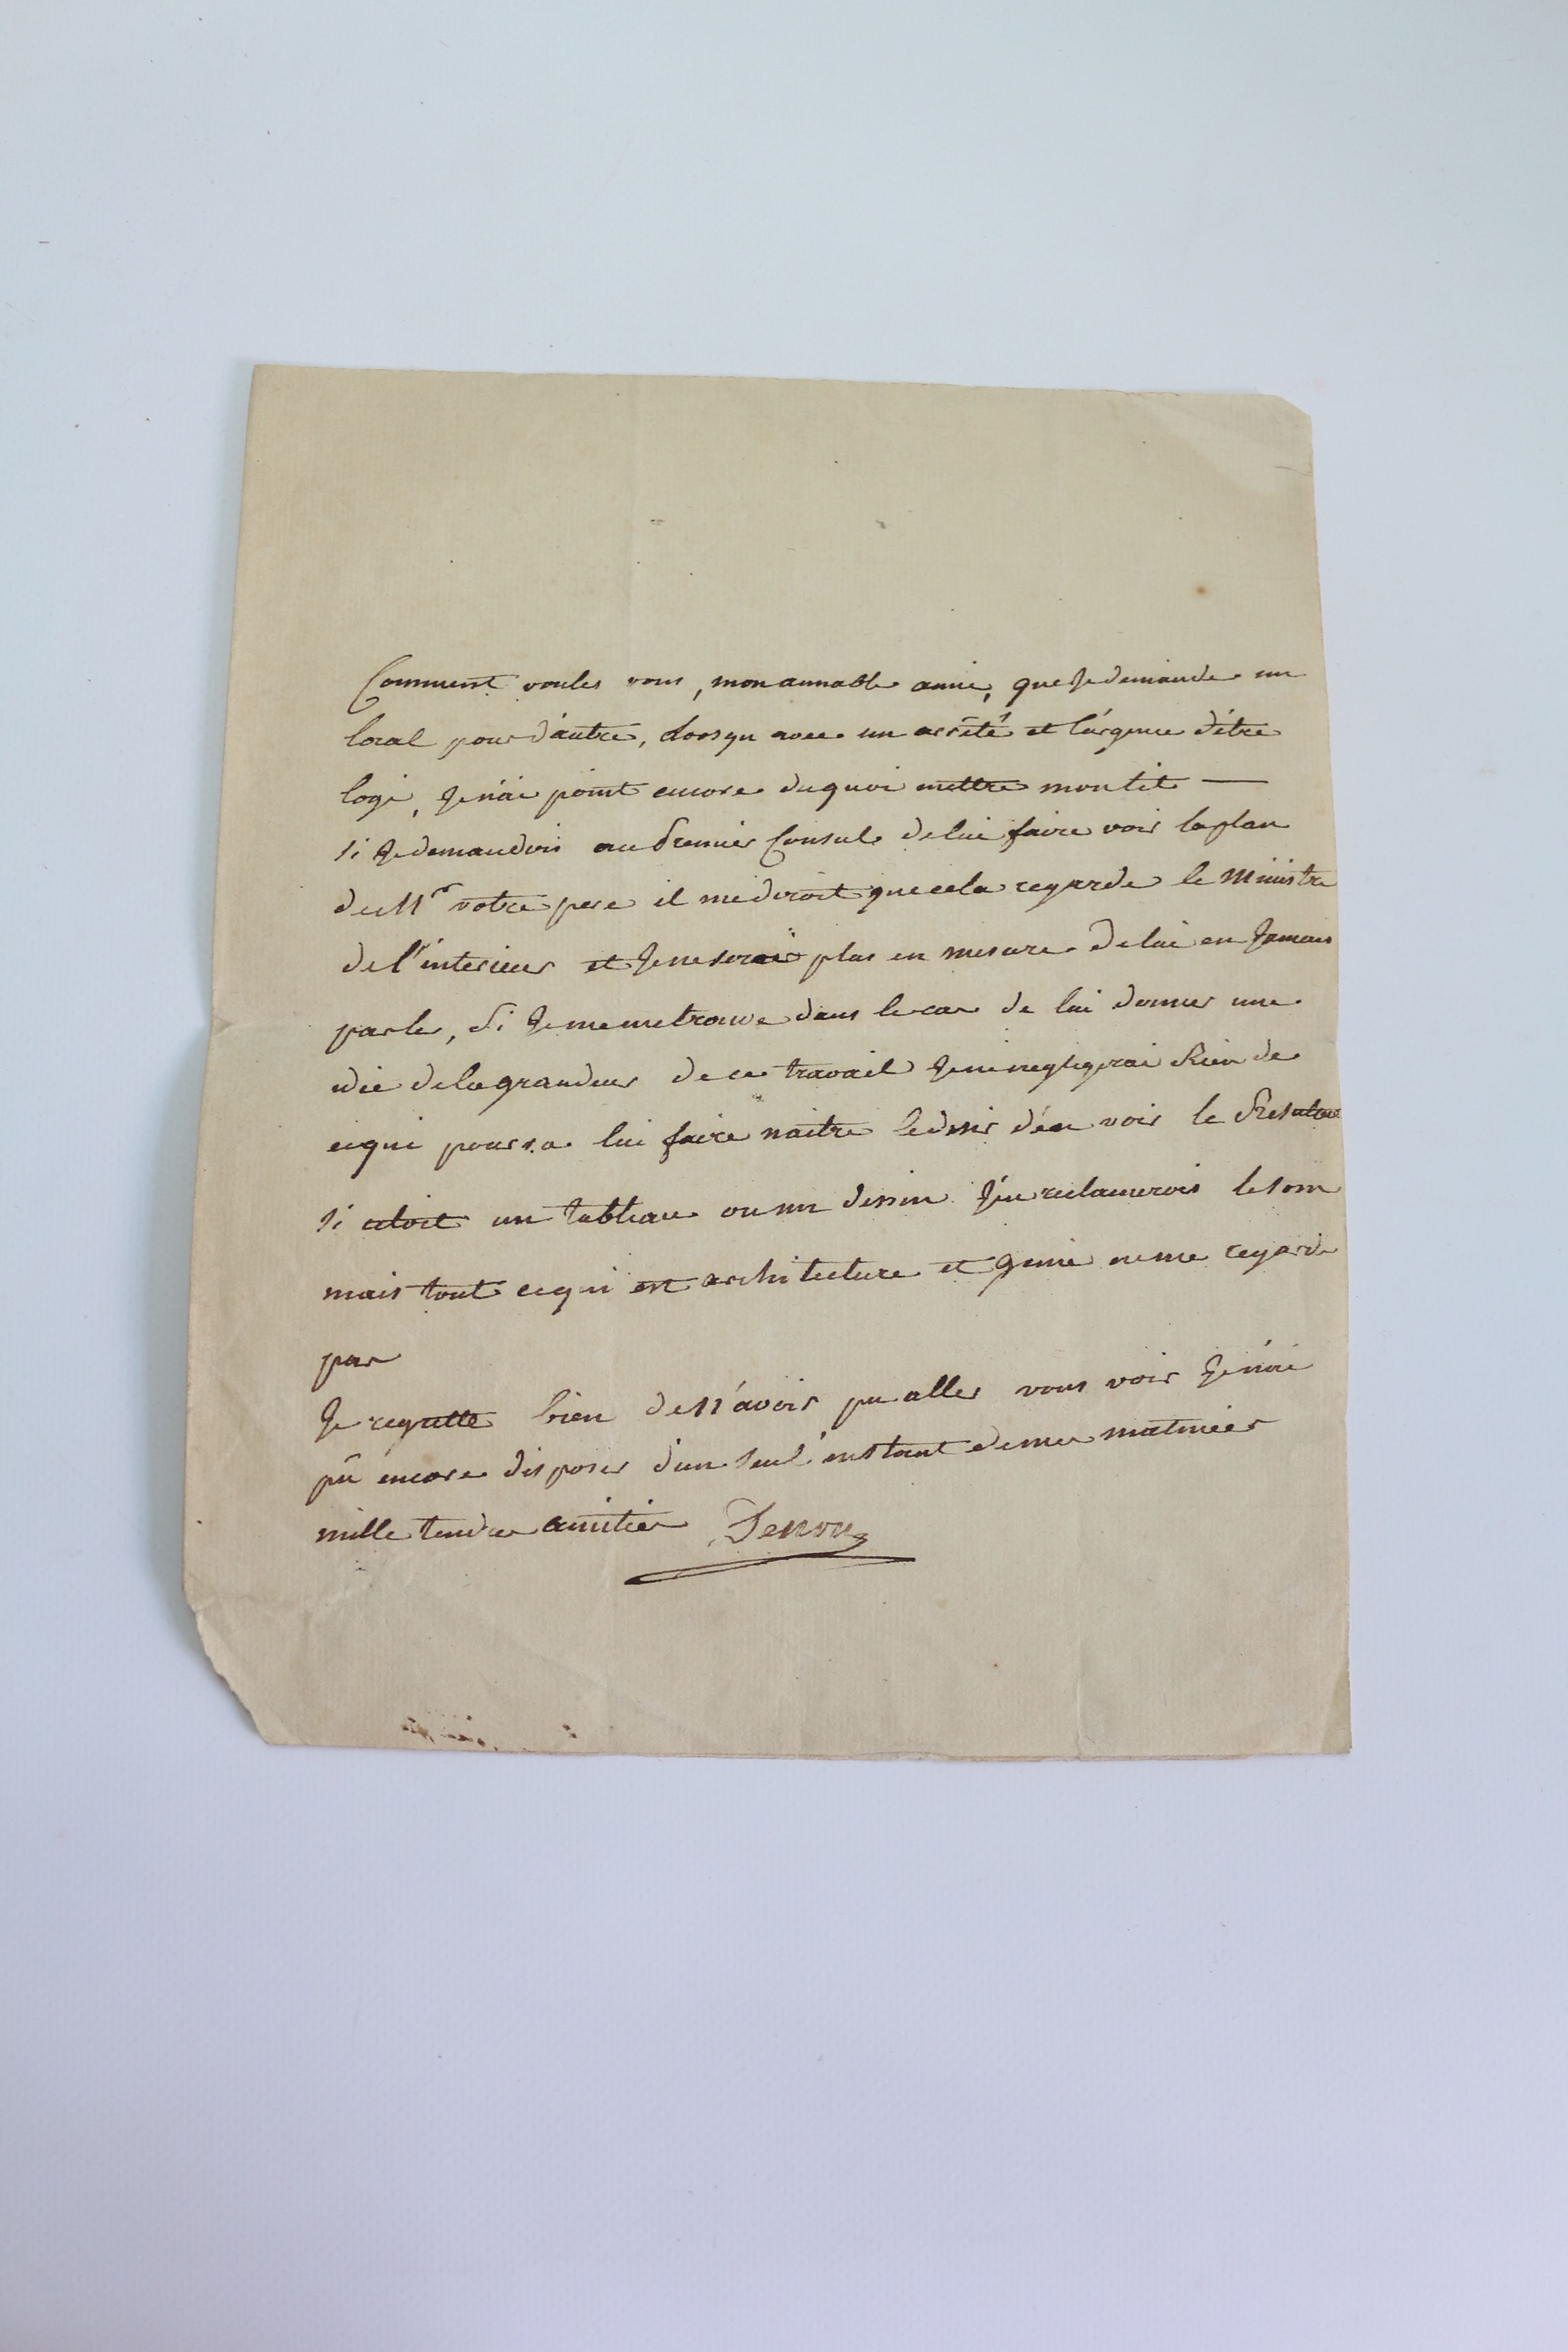 Comment voules vous, mon aimable amie, que Je demande un
local pour d'autre, lorsqu avec un arrêté et l'urgence d'être
logé, Je n'ai point encore de quoi mettre mon lit —
si Je demandois au Premier Consul de lui faire voir le plan
de Mr votre pere il me diroit que cela regarde le Ministre
de l'interieur et Je ne serai plus en mesure de lui en Jamais
parler, Si Je me me trouve dans le cas de lui donner une
idée de la grandeur de ce travail Je ne negligerai Rien de
ce qui pourra lui faire naitre le desir d'en voir le Resultat
si cetoit un tableau ou un dessin J'en reclamerois le soin
mais tout ce qui est architecture et genie ne me regarde
pas
Je regrette bien de N'avoir pu aller vous voir Je n'ai
pû encore disposer d'un seul instant de mes matinées
mille tendres amitiés Denon